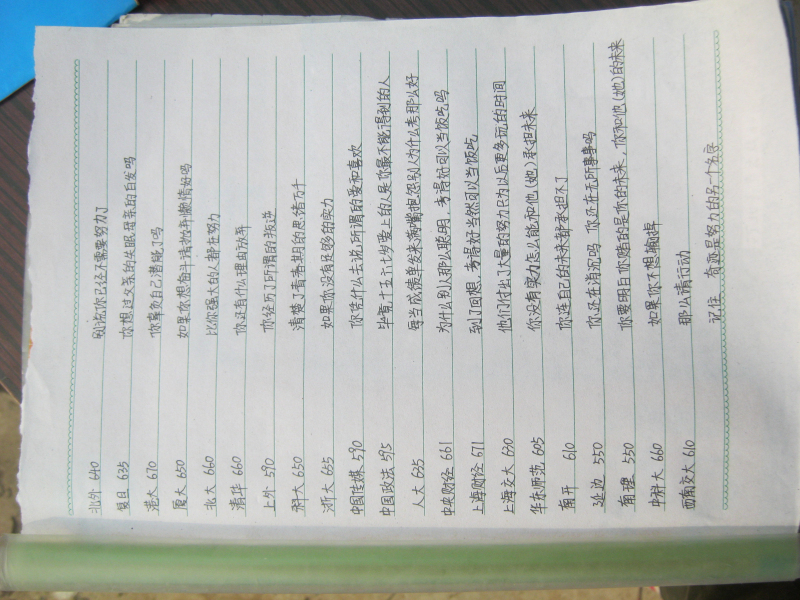 北外 640 别说你已经不需要努力了
复旦 635 你想过父亲的失眠母亲的白发吗
港大 670 你辜负自己潜能了吗
厦大 650 如果你想奋斗请抛弃懒惰好吗
北大 660 比你强大的人都在努力
清华 660 你还有什么理由放弃
上外 590 你经历了所谓的叛逆
科大 650 清楚了青春期的思绪万千
浙大 665 如果你没有足够的实力
中国传媒 590 你凭什么去说所谓的爱和喜欢
中国政法 595 毕竟十五六七岁爱上的人是你最不能得到的人
人大 635 每当成绩单发来满嘴抱怨别人为什么考那么好
中央财经 661 为什么别人那么聪明,考得好可以当饭吃吗
上海财经 671 到了回想,考得好当然可以当饭吃
上海交大 630 他们付出了大量的努力只为以后更多玩的时间
华东师范 605 你没有实力怎么能和他(她)承担未来
南开 610 你连自己的未来都承担不了
延边 550 你还在消沉吗 你还在无所事事吗
南理 550 你要明白你赌的是你的未来,你和他(她)的未来
中科大 660 如果你不想输掉
西南交大 610 那么请行动
记住 奇迹是努力的另一个名字